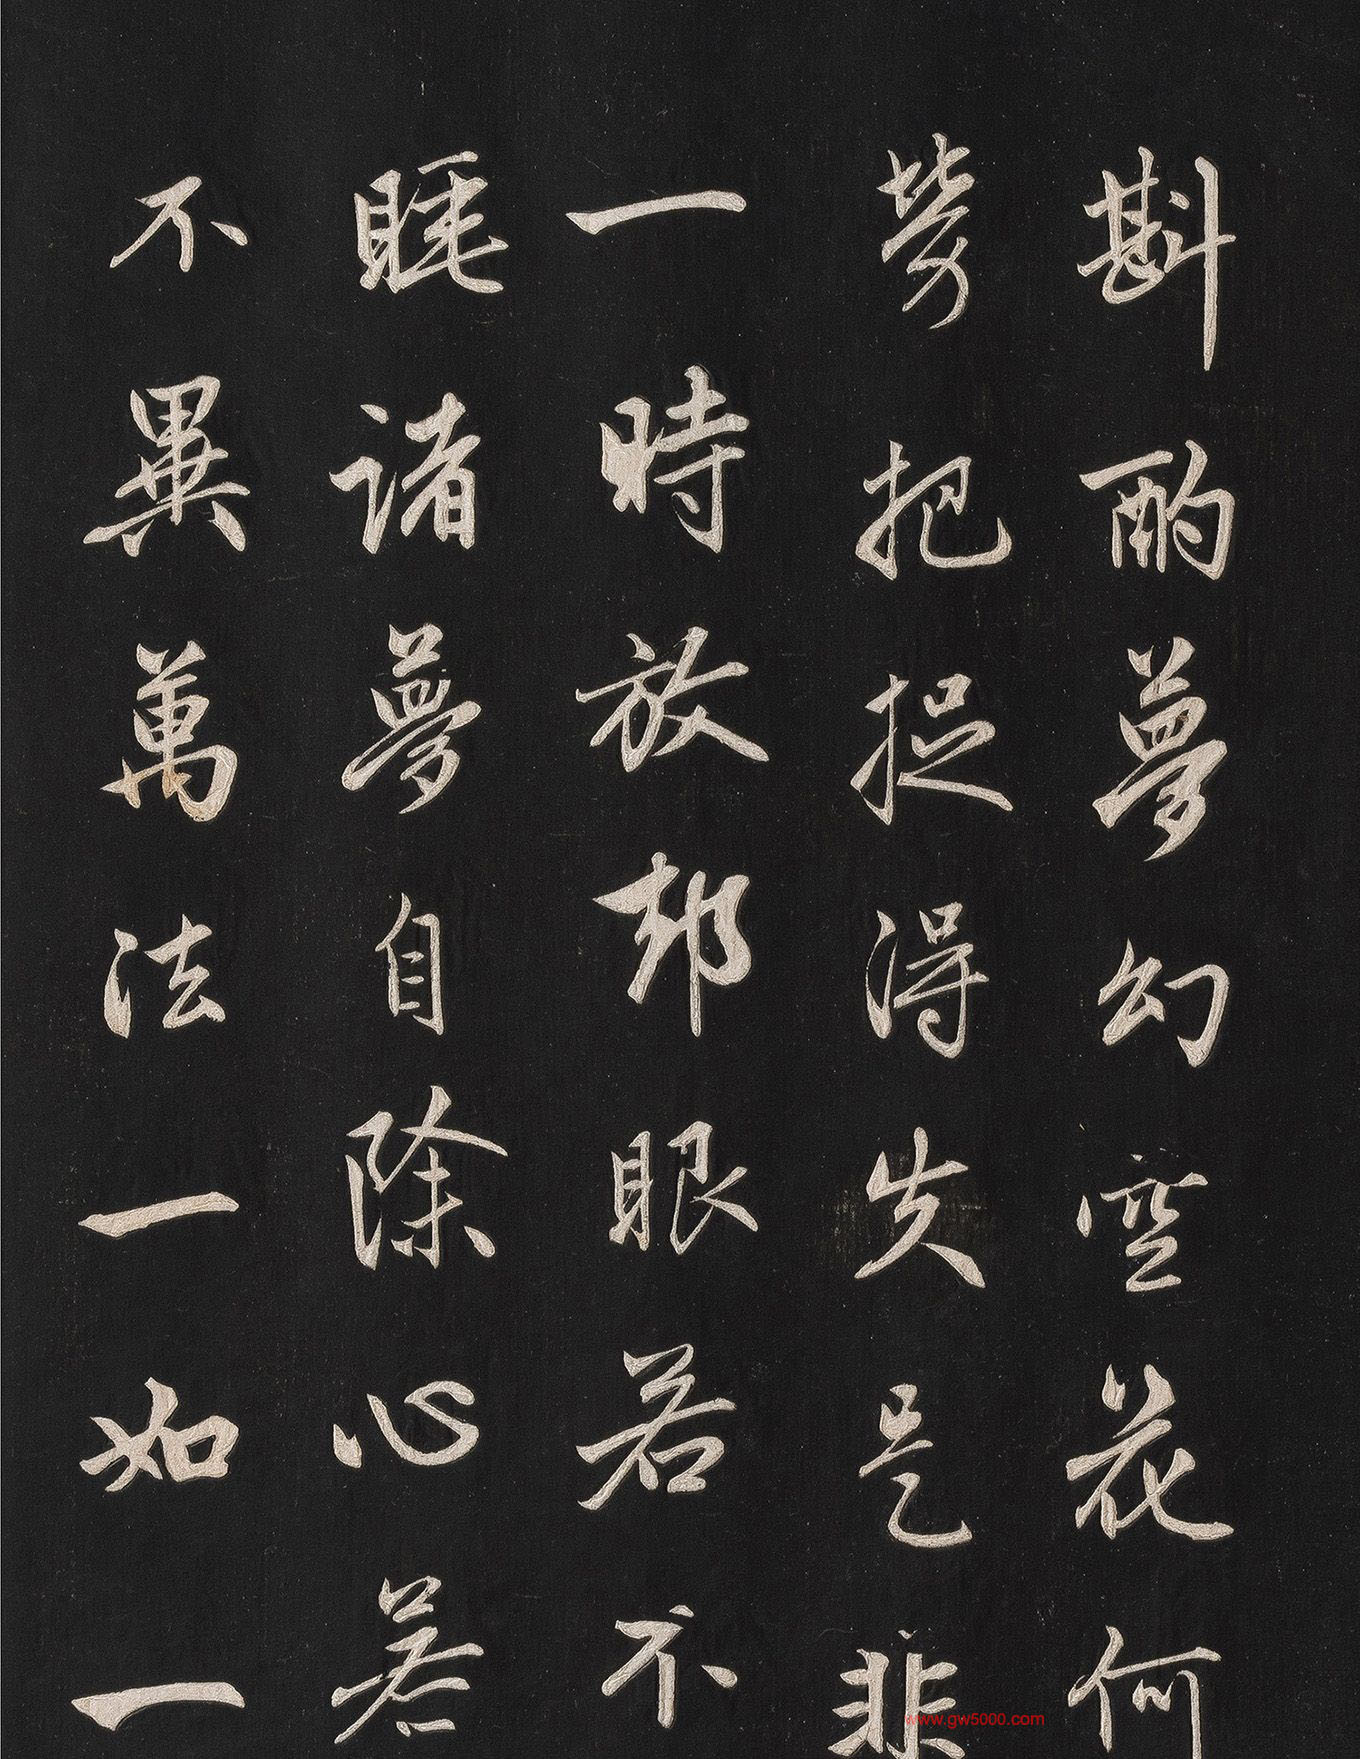 斟酌夢幻空花何
勞把捉得失是非
一時放却眼若不
睡諸夢自除心若
不異萬法一如一
www.gw5000.com